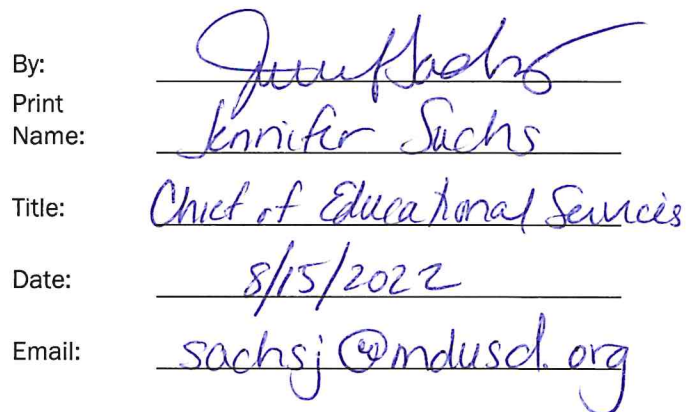 By: Jennifer Sachs
Print
Name: Jennifer Sachs
Title: Chief of Educational Services
Date: 8/15/2022
Email: sachsj@mdusd.org